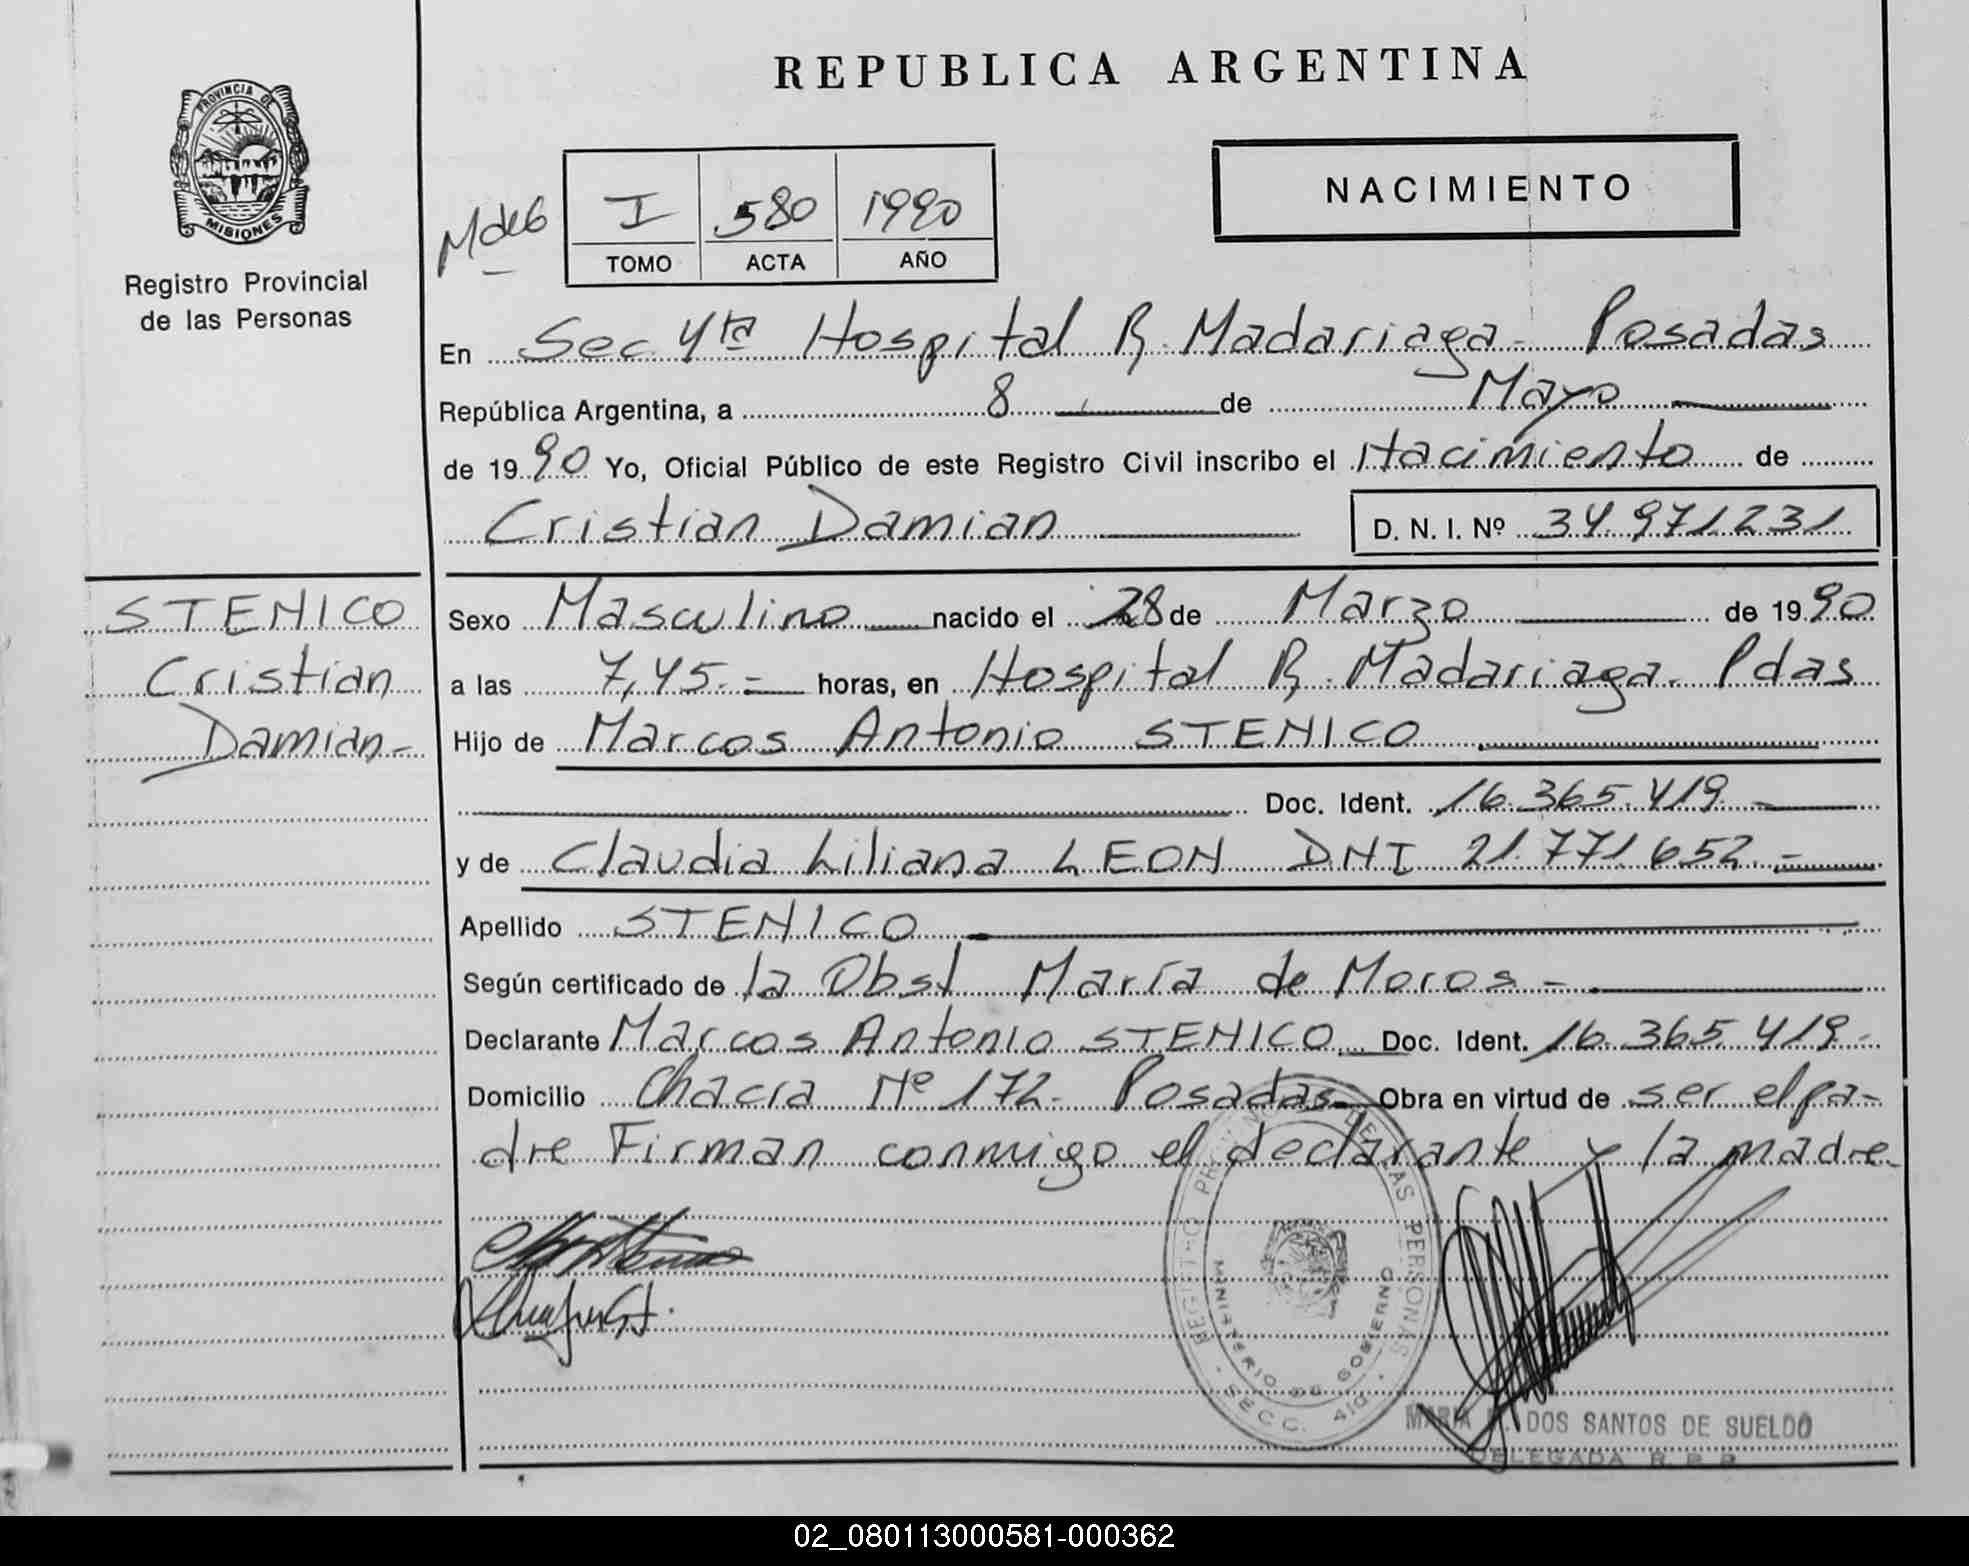 REPUBLICA ARGENTINA
PROVINCIA DE
MISIONES
Registro Provincial
de las Personas
NACIMIENTO
I 580 1990
TOMO ACTA AÑO
En Sec 4ta Hospital R. Madariaga - Posadas
República Argentina, a 8 de Mayo
de 1990 Yo, Oficial Público de este Registro Civil inscribo el Nacimiento de
Cristian Damian D. N. I. Nº 34.971231
STENICO
Cristian
Damian.-
Sexo Masculino nacido el 28 de Marzo de 1990
a las 7,45.- horas, en Hospital R. Madariaga. Pdas
Hijo de Marcos Antonio STENICO
Doc. Ident. 16.365.419.-
y de Claudia Liliana LEON DNI 21.771.652.-
Apellido STENICO
Según certificado de la Obst María de Moros -
Declarante Marcos Antonio STENICO Doc. Ident. 16.365.419.-
Domicilio Chacra Nº 172. Posadas. Obra en virtud de ser el pa-
dre Firman conmigo el declarante y la madre.
REGISTRO PROVINCIAL DE LAS PERSONAS
MINISTERIO DE GOBIERNO
SECC. 4ta
MARIA DOS SANTOS DE SUELDO
DELEGADA R. P. P.
02_080113000581-000362